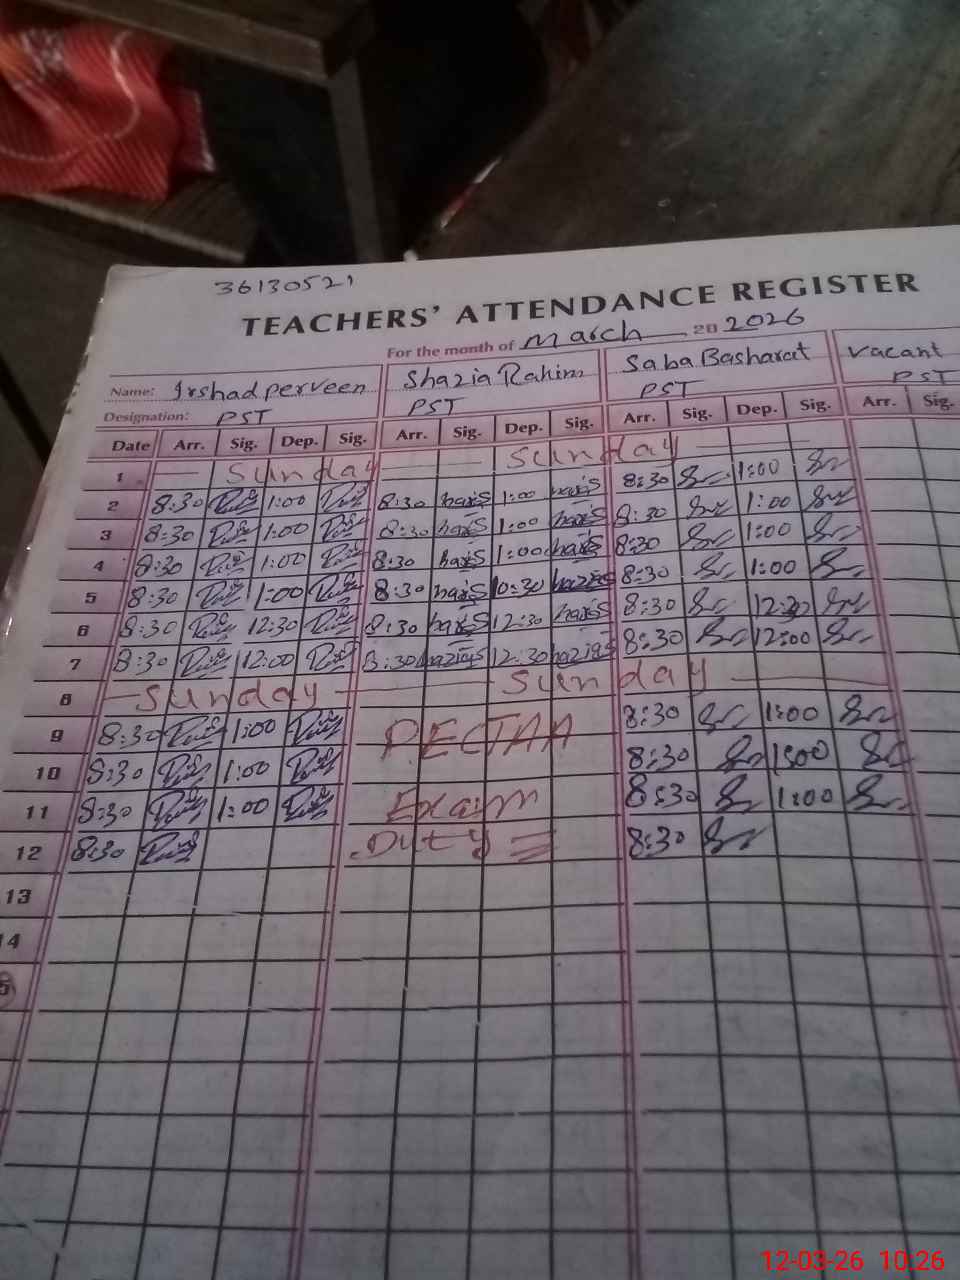 36130521
TEACHERS' ATTENDANCE REGISTER
For the month of March 20 2026
Name: Irshad perveen Shazia Rahim Saba Basharat vacant
Designation: PST PST PST PST
Date Arr. Sig. Dep. Sig. Arr. Sig. Dep. Sig. Arr. Sig. Dep. Sig. Arr. Sig.
1 Sunday Sunday
2 8:30 1:00 8:30 1:00 8:30 1:00
3 8:30 1:00 8:30 1:00 8:30 1:00
4 8:30 1:00 8:30 1:00 8:30 1:00
5 8:30 1:00 8:30 10:30 8:30 1:00
6 8:30 12:30 8:30 12:30 8:30 12:30
7 8:30 12:00 8:30 12:30 8:30 12:00
8 Sunday Sunday
9 8:30 1:00 PECTAA 8:30 1:00
10 8:30 1:00 8:30 1:00
11 8:30 1:00 Exam 8:30 1:00
12 8:30 Duty 8:30
13
14
12-03-26 10.26